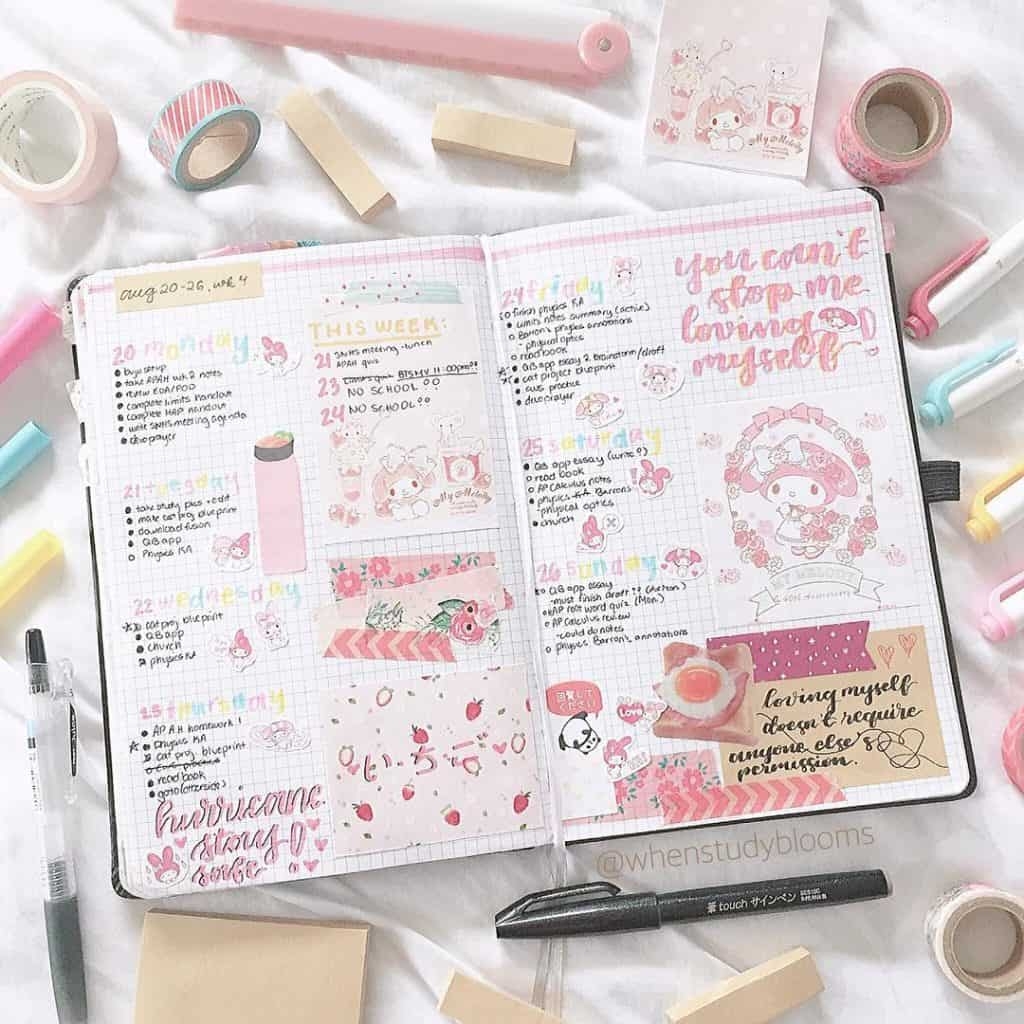 My Melody
aug 20-26, wk 4
20 monday
take APAH wk 2 notes
review EOA/POO
complete limits handout
complete HAP handout
write SNHS meeting agenda
devo prayer
21 tuesday
take study pics + edit
make cat proj blueprint
download fusion
QB app
Physics KA
22 wednesday
cat proj blueprint
QB app
church
physics KA
23 thursday
AP A.H homework!
Physics KA
cat proj. blueprint
read book
goto (otherside)
hurricane
stay
safe
THIS WEEK:
21 SNHS meeting - lunch
APAH quiz
23 BTSMV 11:00pm??
NO SCHOOL
24 NO SCHOOL
My Melody
いちご
24 friday
finish physics KA
limits notes summary (active)
Barron's physics annotations
- physical optics
read book
QB app essay 2 brainstorm/draft
cat project blueprint
sws practice
devo prayer
25 saturday
QB app essay (write?)
read book
AP Calculus notes
physics Barrons
- physical optics
church
26 sunday
QB app essay
- must finish draft
HAP root word quiz (Mon.)
AP Calculus review
- could do notes
physics Barron's annotations
you can't
stop me
loving
myself
MY MELODY
回覧して
ください
Love
loving myself
doesn't require
anyone else's
permission.
@whenstudyblooms
筆 touch サインペン